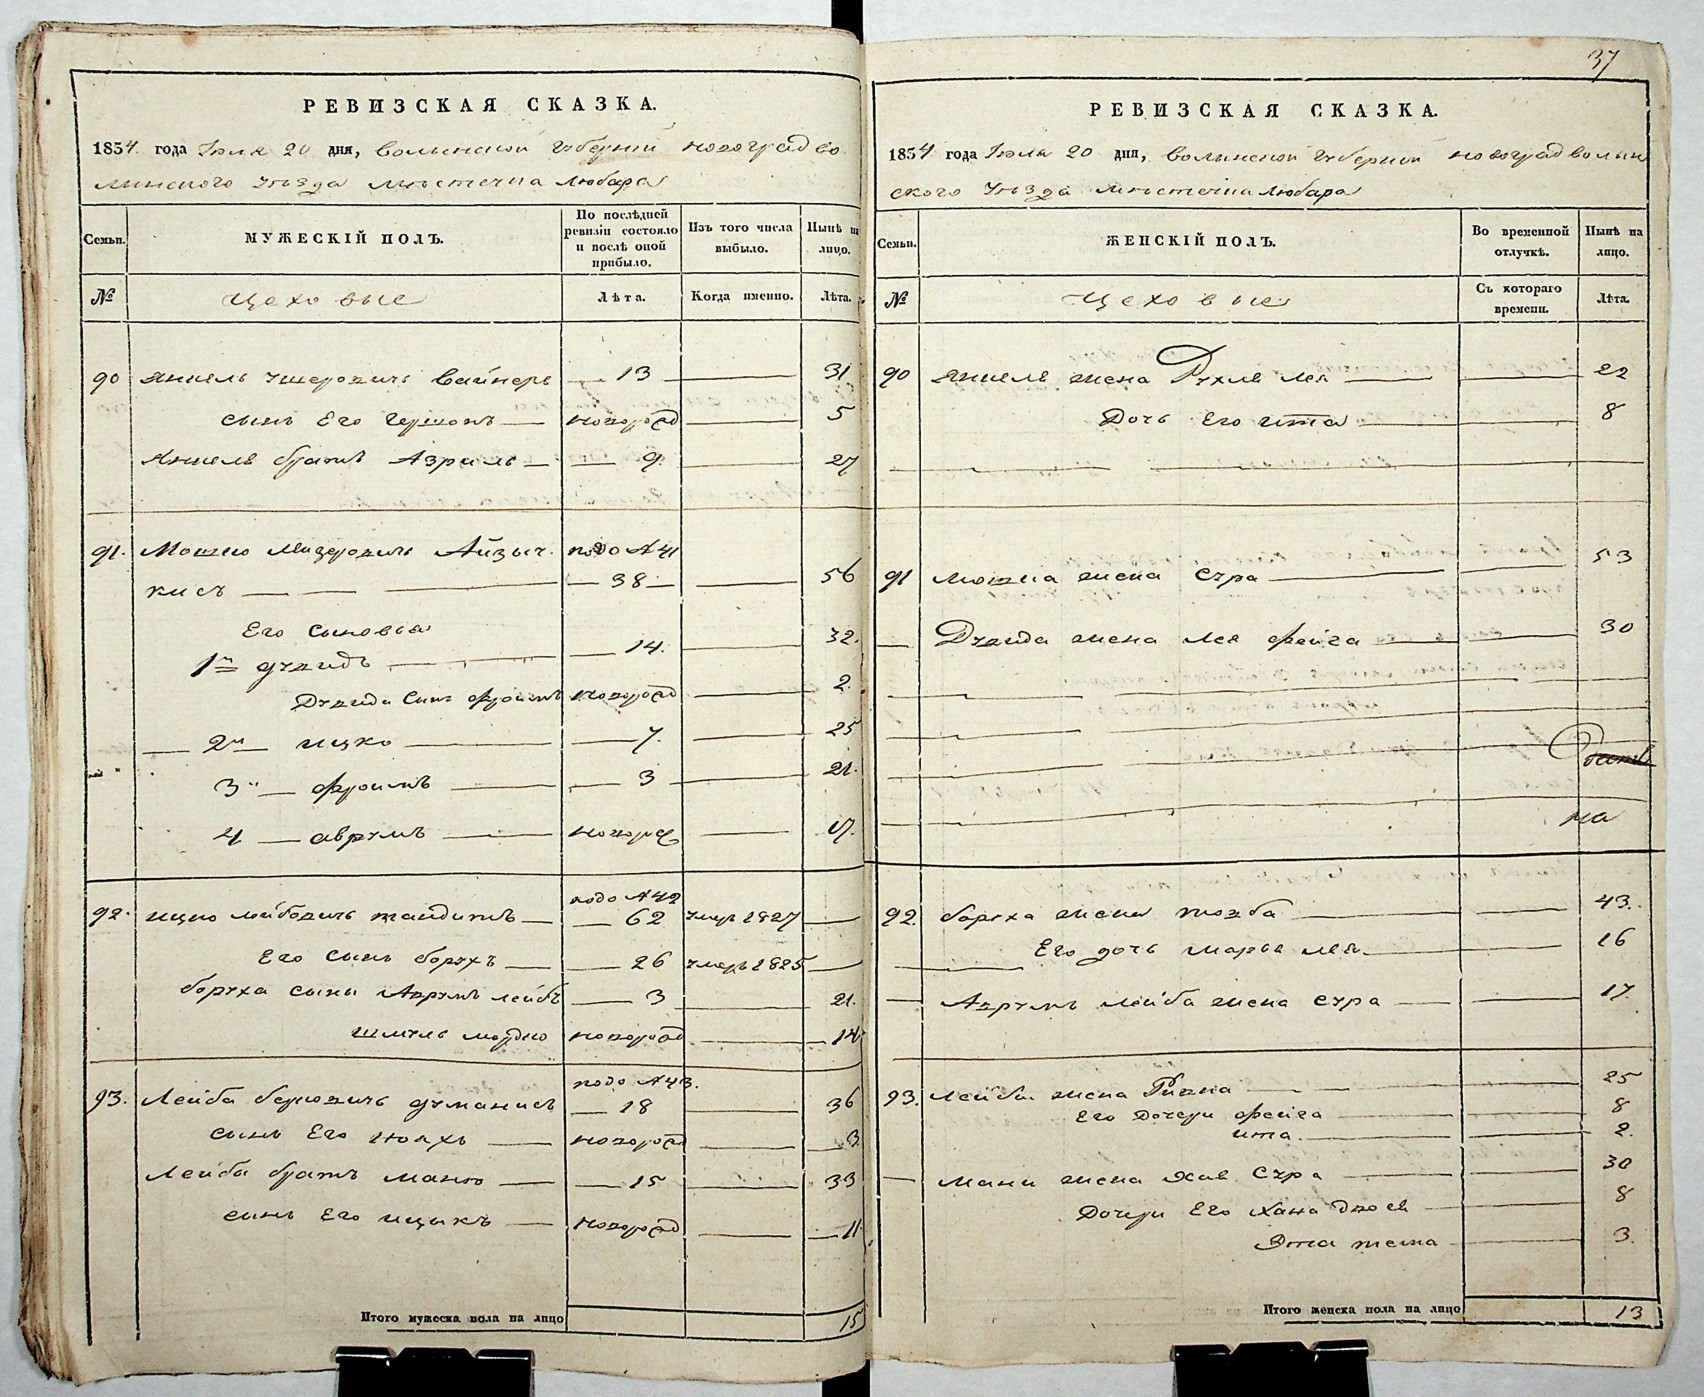 37
РЕВИЗСКАЯ СКАЗКА.
1834 года Июля 20 дня, Волынской Губернии Новоградво
лынского Уезда местечка Любара
Семьи.
МУЖЕСКІЙ ПОЛЪ.
По послѣдней ревизіи состояло и послѣ оной прибыло.
Изъ того числа выбыло.
Нынѣ на лицо.
№
Цеховые
Лѣта.
Когда именно.
Лѣта.
90 Янкель Ушеровичъ Вайнеръ 13 31
сынъ Его Гершонъ новорожд 5
Янкеля братъ Азриль 9 27
91. Мошко Лейзеровичъ Айзыч. подо №41
кисъ 38 56
Его сыновья
1й Дувидъ 14 32.
Дувида сынъ Фроимъ новорожд 2.
2й Ицко 7. 25
3й Фроимъ 3 21.
4 Аврумъ новорож 17.
подо №42
92. Ицко Лейбовичъ 62 умеръ 1827
Его сынъ Борухъ 26 умеръ 1825
Боруха сыны Аврумъ Лейбъ 3 21.
Шмуль Мордко новорожд 14
подо №43.
93. Лейба Берковичъ Думанисъ 18 36
сынъ Его Нояхъ новорожд 3
Лейбы братъ Манко 15 33
сынъ Его Ицыкъ новорожд 11
Итого мужеска пола на лицо 15
РЕВИЗСКАЯ СКАЗКА.
1834 года Июля 20 дня, Волынской Губернии Новоградволын
ского Уезда местечка Любара
Семьи.
ЖЕНСКІЙ ПОЛЪ.
Во временной отлучкѣ.
Нынѣ на лицо.
№
Цеховые
Съ котораго времени.
Лѣта.
90 Янкеля жена Рухля Лея 22
Дочь Его Ита 8
91 Мошка жена Сура 53
Дувида жена Лея Фейга 30
на
92. Боруха жена Товба 43.
Его дочь Марья Лея 16
Аврумъ Лейба жена Сура 17.
93. Лейба жена Ривка 25
Его дочери Фейга 8
Ита 2.
Манки жена Хая Сура 30
Дочери Его Хана Двося 8
3.
Итого женска пола на лицо 13